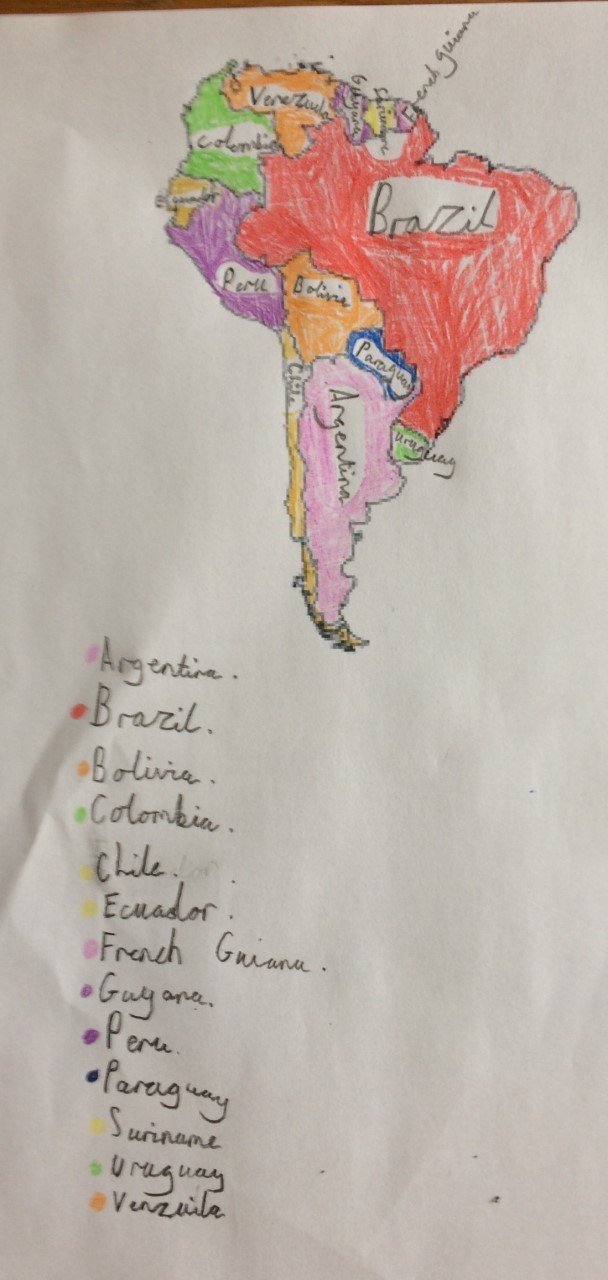 French Guiana
Venezuila
Guyana
Suriname
Colombia
Ecuador
Brazil
Peru
Bolivia
Paraguay
Chile
Argentina
Uruguay
Argentina.
Brazil.
Bolivia.
Colombia.
Chile.
Ecuador.
French Guiana.
Guyana.
Peru.
Paraguay
Suriname
Uruguay
Venzuila